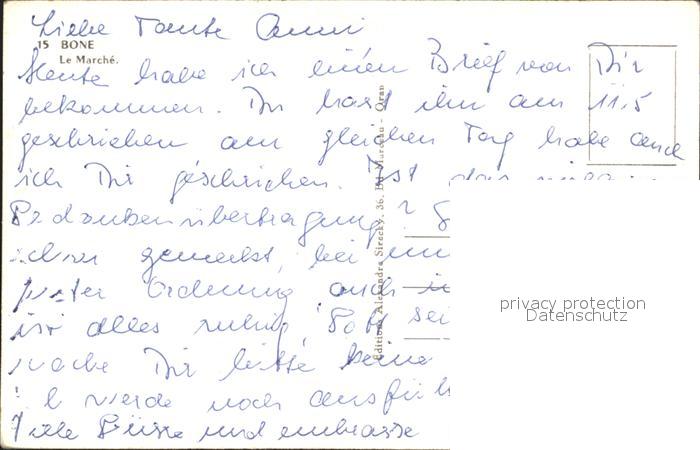 Liebe Tante Anni
15 BONE
Le Marché.
Heute habe ich einen Brief von Dir
bekommen. Du hast ihn am 11.5
geschrieben am gleichen Tag habe auch
ich Dir geschrieben. Ist das nicht
Gedankenübertragung?
schon gemerkt, bei uns
guter Ordnung auch
ist alles ruhig, Gott sei
mache Dir bitte keine
ich werde noch ausführ
Viele Grüsse und embrasse
Editions Alexandra Sirecky, 36, Bd Marceau - Oran
privacy protection
Datenschutz